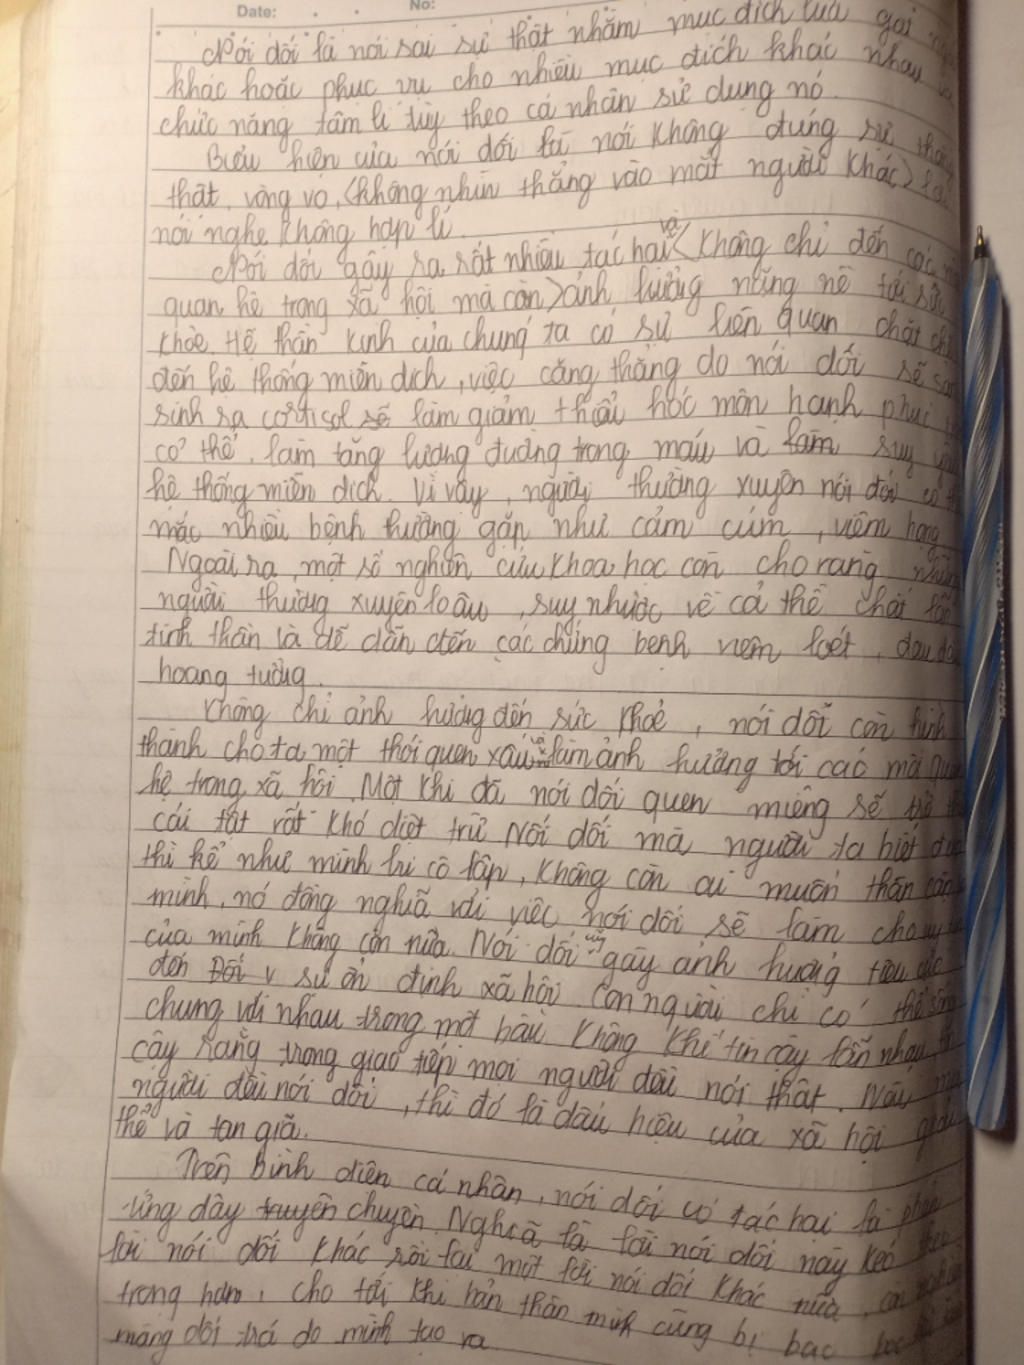 Date: . . No:
Nói dối là nói sai sự thật nhằm mục đích lừa gạt
khác hoặc phục vụ cho nhiều mục đích khác nhau
chức năng tâm lí tùy theo cá nhân sử dụng nó.
Biểu hiện của nói dối là nói không đúng sự
thật, vòng vo, (không nhìn thẳng vào mắt người khác)
nói nghe không hợp lí.
Nói dối gây ra rất nhiều tác hại và (không chỉ đến các
quan hệ trong xã hội mà còn) ảnh hưởng nặng nề tới sức
khỏe. Hệ thần kinh của chúng ta có sự liên quan chặt
đến hệ thống miễn dịch, việc căng thẳng do nói dối sẽ
sinh ra cortisol sẽ làm giảm thiểu hóc môn hạnh phúc
cơ thể, làm tăng lượng đường trong máu và làm suy
hệ thống miễn dịch. Vì vậy, người thường xuyên nói dối
mắc nhiều bệnh thường gặp như cảm cúm, viêm họng
Ngoài ra, một số nghiên cứu khoa học còn cho rằng
người thường xuyên lo âu, suy nhược về cả thể chất lẫn
tinh thần là dễ dẫn đến các chứng bệnh viêm loét, đau
hoang tưởng.
Không chỉ ảnh hưởng đến sức khoẻ, nói dối còn hình
thành cho ta một thói quen xấu và làm ảnh hưởng tới các mối quan
hệ trong xã hội. Một khi đã nói dối quen miệng sẽ trở
cái tật rất khó diệt trừ. Nói dối mà người ta biết
thì kể như mình bị cô lập, không còn ai muốn thân cận
mình, nó đồng nghĩa với việc nói dối sẽ làm cho
của mình không còn nữa. Nói dối gây ảnh hưởng tiêu cực
đến sự ổn định xã hội. Con người chỉ có thể sống
chung với nhau trong một bầu không khí tin cậy lẫn nhau,
cậy rằng trong giao tiếp mọi người đều nói thật. Nếu
người đều nói dối, thì đó là dấu hiệu của xã hội
thể và tan giã.
Trên bình diện cá nhân, nói dối có tác hại là phản
ứng dây truyền chuyền. Nghĩa là lời nói dối này kéo theo
lời nói dối khác rồi lại một lời nói dối khác nữa,
trọng hơn, cho tới khi bản thân mình cũng bị
màng dối trá do mình tạo ra.